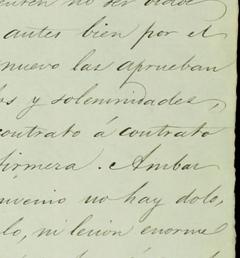 no ser
antes bien por el
nuevo las aprueban
y solemnidades,
contrato á contrato
firmeza. Ambas
no hay dolo,
ni lesion enorme